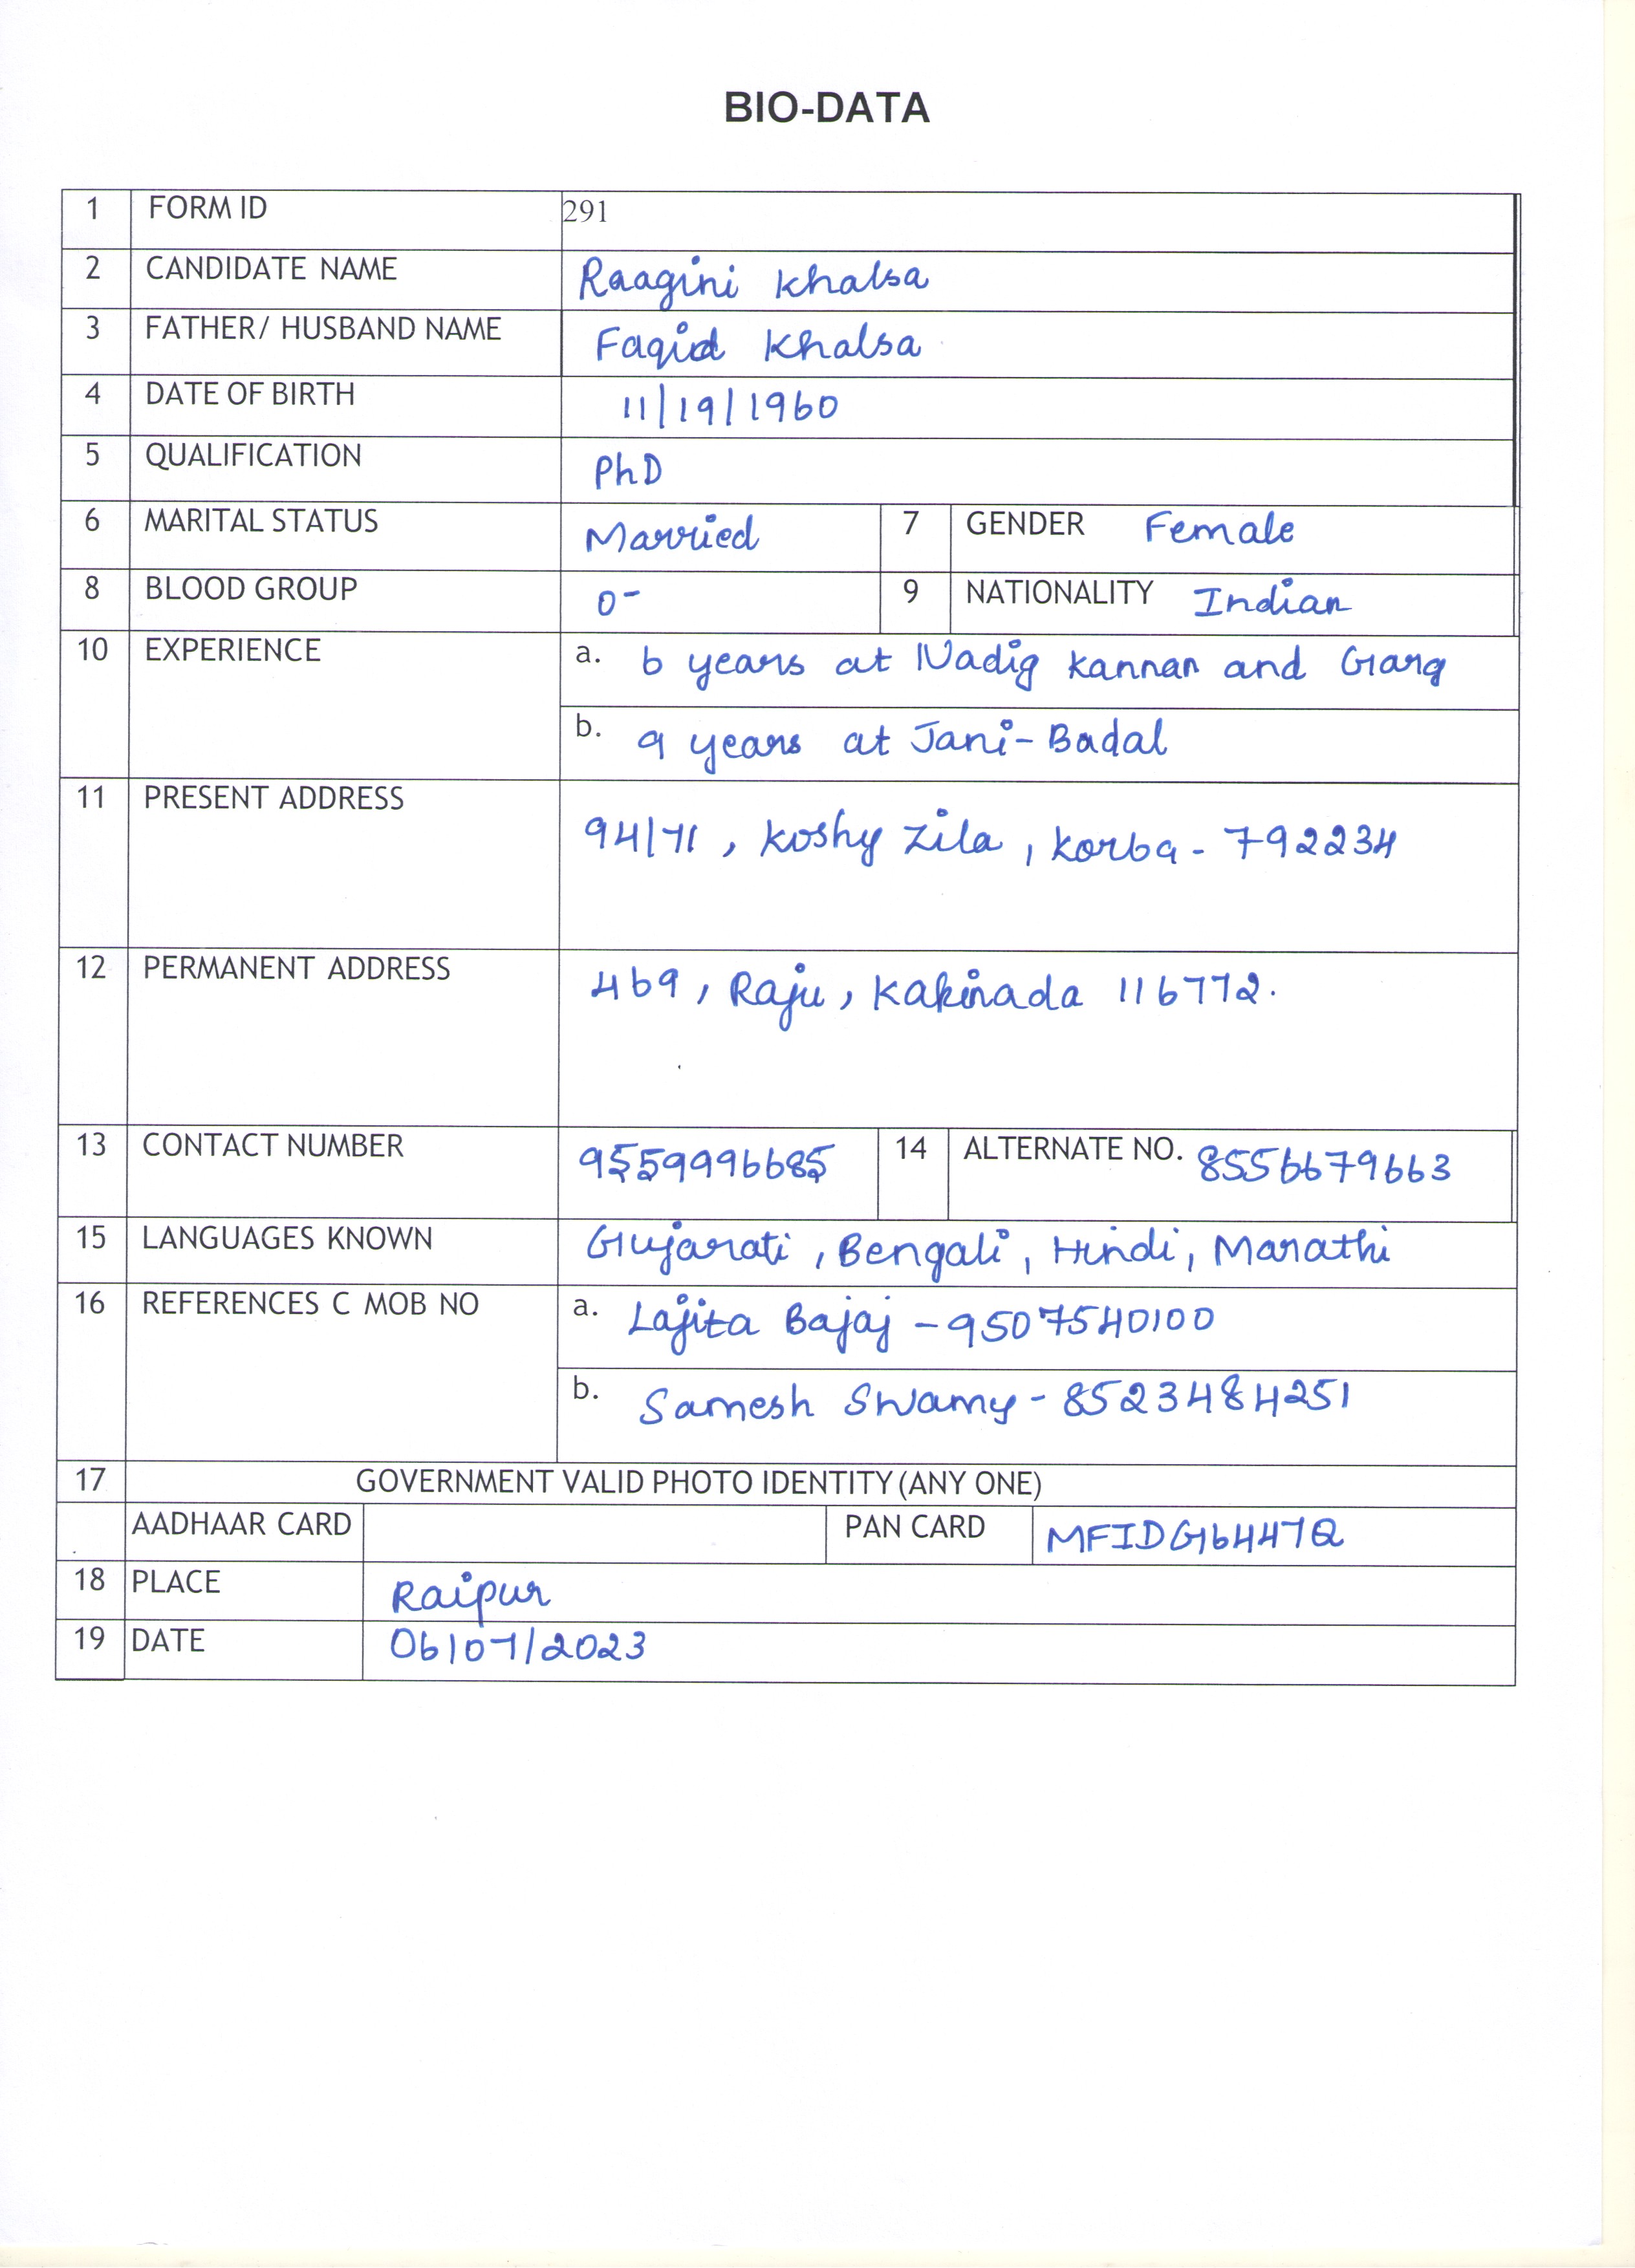 BIO-DATA
1 FORM ID 291
2 CANDIDATE NAME Raagini Khalsa
3 FATHER/ HUSBAND NAME Faqid Khalsa
4 DATE OF BIRTH 11/19/1960
5 QUALIFICATION PhD
6 MARITAL STATUS Married 7 GENDER Female
8 BLOOD GROUP O- 9 NATIONALITY Indian
10 EXPERIENCE a. 6 years at Nadig Kannan and Garg
b. 9 years at Jani-Badal
11 PRESENT ADDRESS 94/71, Koshy Zila, Korba - 792234
12 PERMANENT ADDRESS 469, Raju, Kakinada 116772.
13 CONTACT NUMBER 9559996685 14 ALTERNATE NO. 8556679663
15 LANGUAGES KNOWN Gujarati, Bengali, Hindi, Marathi
16 REFERENCES C MOB NO a. Lajita Bajaj - 9507540100
b. Samesh Swamy - 8523484251
17 GOVERNMENT VALID PHOTO IDENTITY (ANY ONE)
AADHAAR CARD PAN CARD MFIDG6447Q
18 PLACE Raipur
19 DATE 06/07/2023